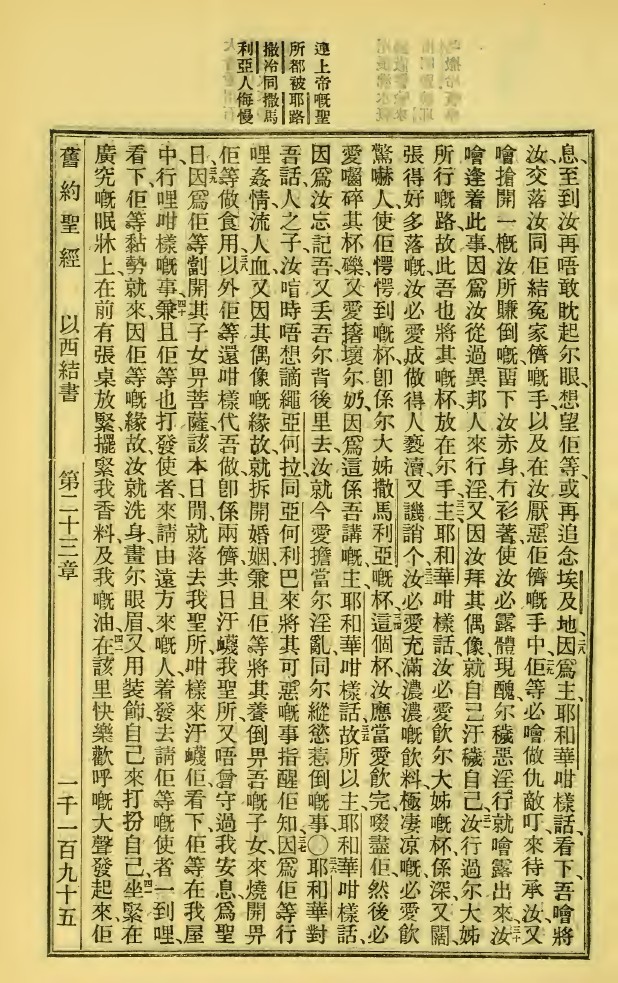 連上帝嘅聖
所都被耶路
撒冷同撒馬
利亞人侮慢
息、至到汝再唔敢眈起尔眼、想望佢等、或再追念埃及地、因爲主、耶和華咁樣話、看下、吾噲將
汝交落汝同佢結冤家儕嘅手、以及在汝厭惡佢儕嘅手中、佢等必噲做仇敵叮來待承汝、又
噲搶開一概汝所賺倒嘅、畱下汝赤身冇衫著、使汝必露體現醜、尔穢惡淫行、就噲露出來、汝
噲逢着此事、因爲汝從過異邦人來行淫、又因汝拜其偶像、就自己汗穢自己、汝行過尔大姊
所行嘅路、故此吾也將其嘅杯、放在尔手、主耶和華咁樣話、汝必愛飲尔大姊嘅杯、係深又闊、
張得好多落嘅、汝必愛成做得人褻瀆、又譏誚个、汝必愛充滿濃濃嘅飲料、極凄凉嘅、必愛飲
驚嚇人、使佢愕愕到嘅杯、卽係尔大姊撒馬利亞嘅杯、這個杯、汝應當愛飲完啜盡佢、然後必
愛嚙碎其杯礫、又愛撦壞尔奶、因爲這係吾講嘅、主耶和華咁樣話、故所以主耶和華咁樣話、
因爲汝忘記吾、又丢吾尔背後里去、汝就今愛擔當尔淫亂、同尔縱慾惹倒嘅事、〇耶和華對
吾話、人之子、汝喑時唔想謫繩亞何拉、同亞何利巴、來將其可惡嘅事、指醒佢知、因爲佢等行
哩姦情流人血、又因其偶像嘅緣故、就拆開婚姻、兼且佢等將其養倒畀吾嘅子女、來燒開畀
佢等做食用、以外佢等還咁樣代吾做、卽係兩儕共日汗衊我聖所、又唔曾守過我安息、爲聖
日、因爲佢等劏開其子女、畀菩薩、該本日閒、就落去我聖所、咁樣來汗衊佢、看下、佢等在我屋
中、行哩咁樣嘅事、兼且佢等也打發使者、來請由遠方來嘅人、着發去請佢等嘅使者一到哩、
看下、佢等黏勢就來、因佢等嘅緣故、汝就洗身、畫尔眼眉、又用裝飾自己、來打扮自己、坐緊在
廣究嘅眠牀上、在前有張桌放緊、擺緊我香料、及我嘅油、在該里快樂歡呼嘅大聲發起來、佢
舊約聖經　以西結書　第二十三章　一千一百九十五